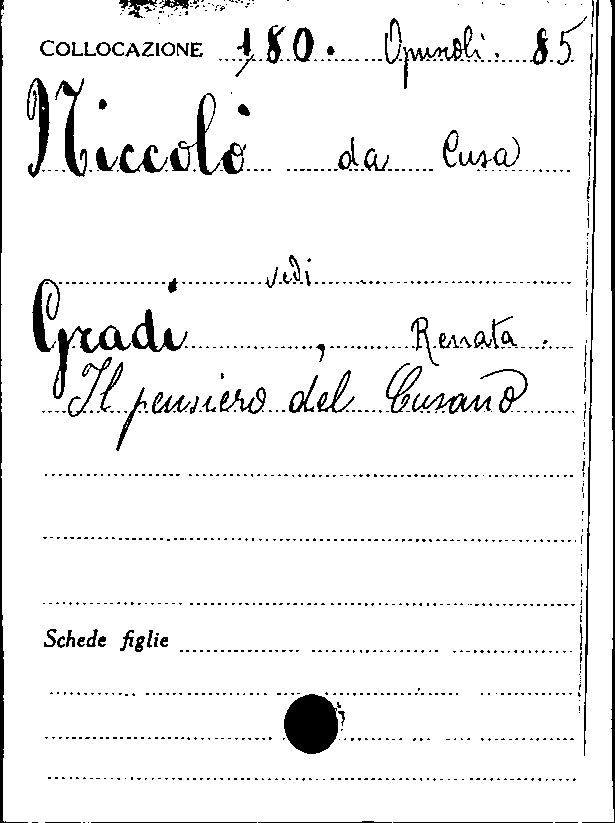 COLLOCAZIONE 180. Opuscoli. 85
Niccolò da Cusa
vedi
Gradi, Renata.
Il pensiero del Cusano
Schede figlie